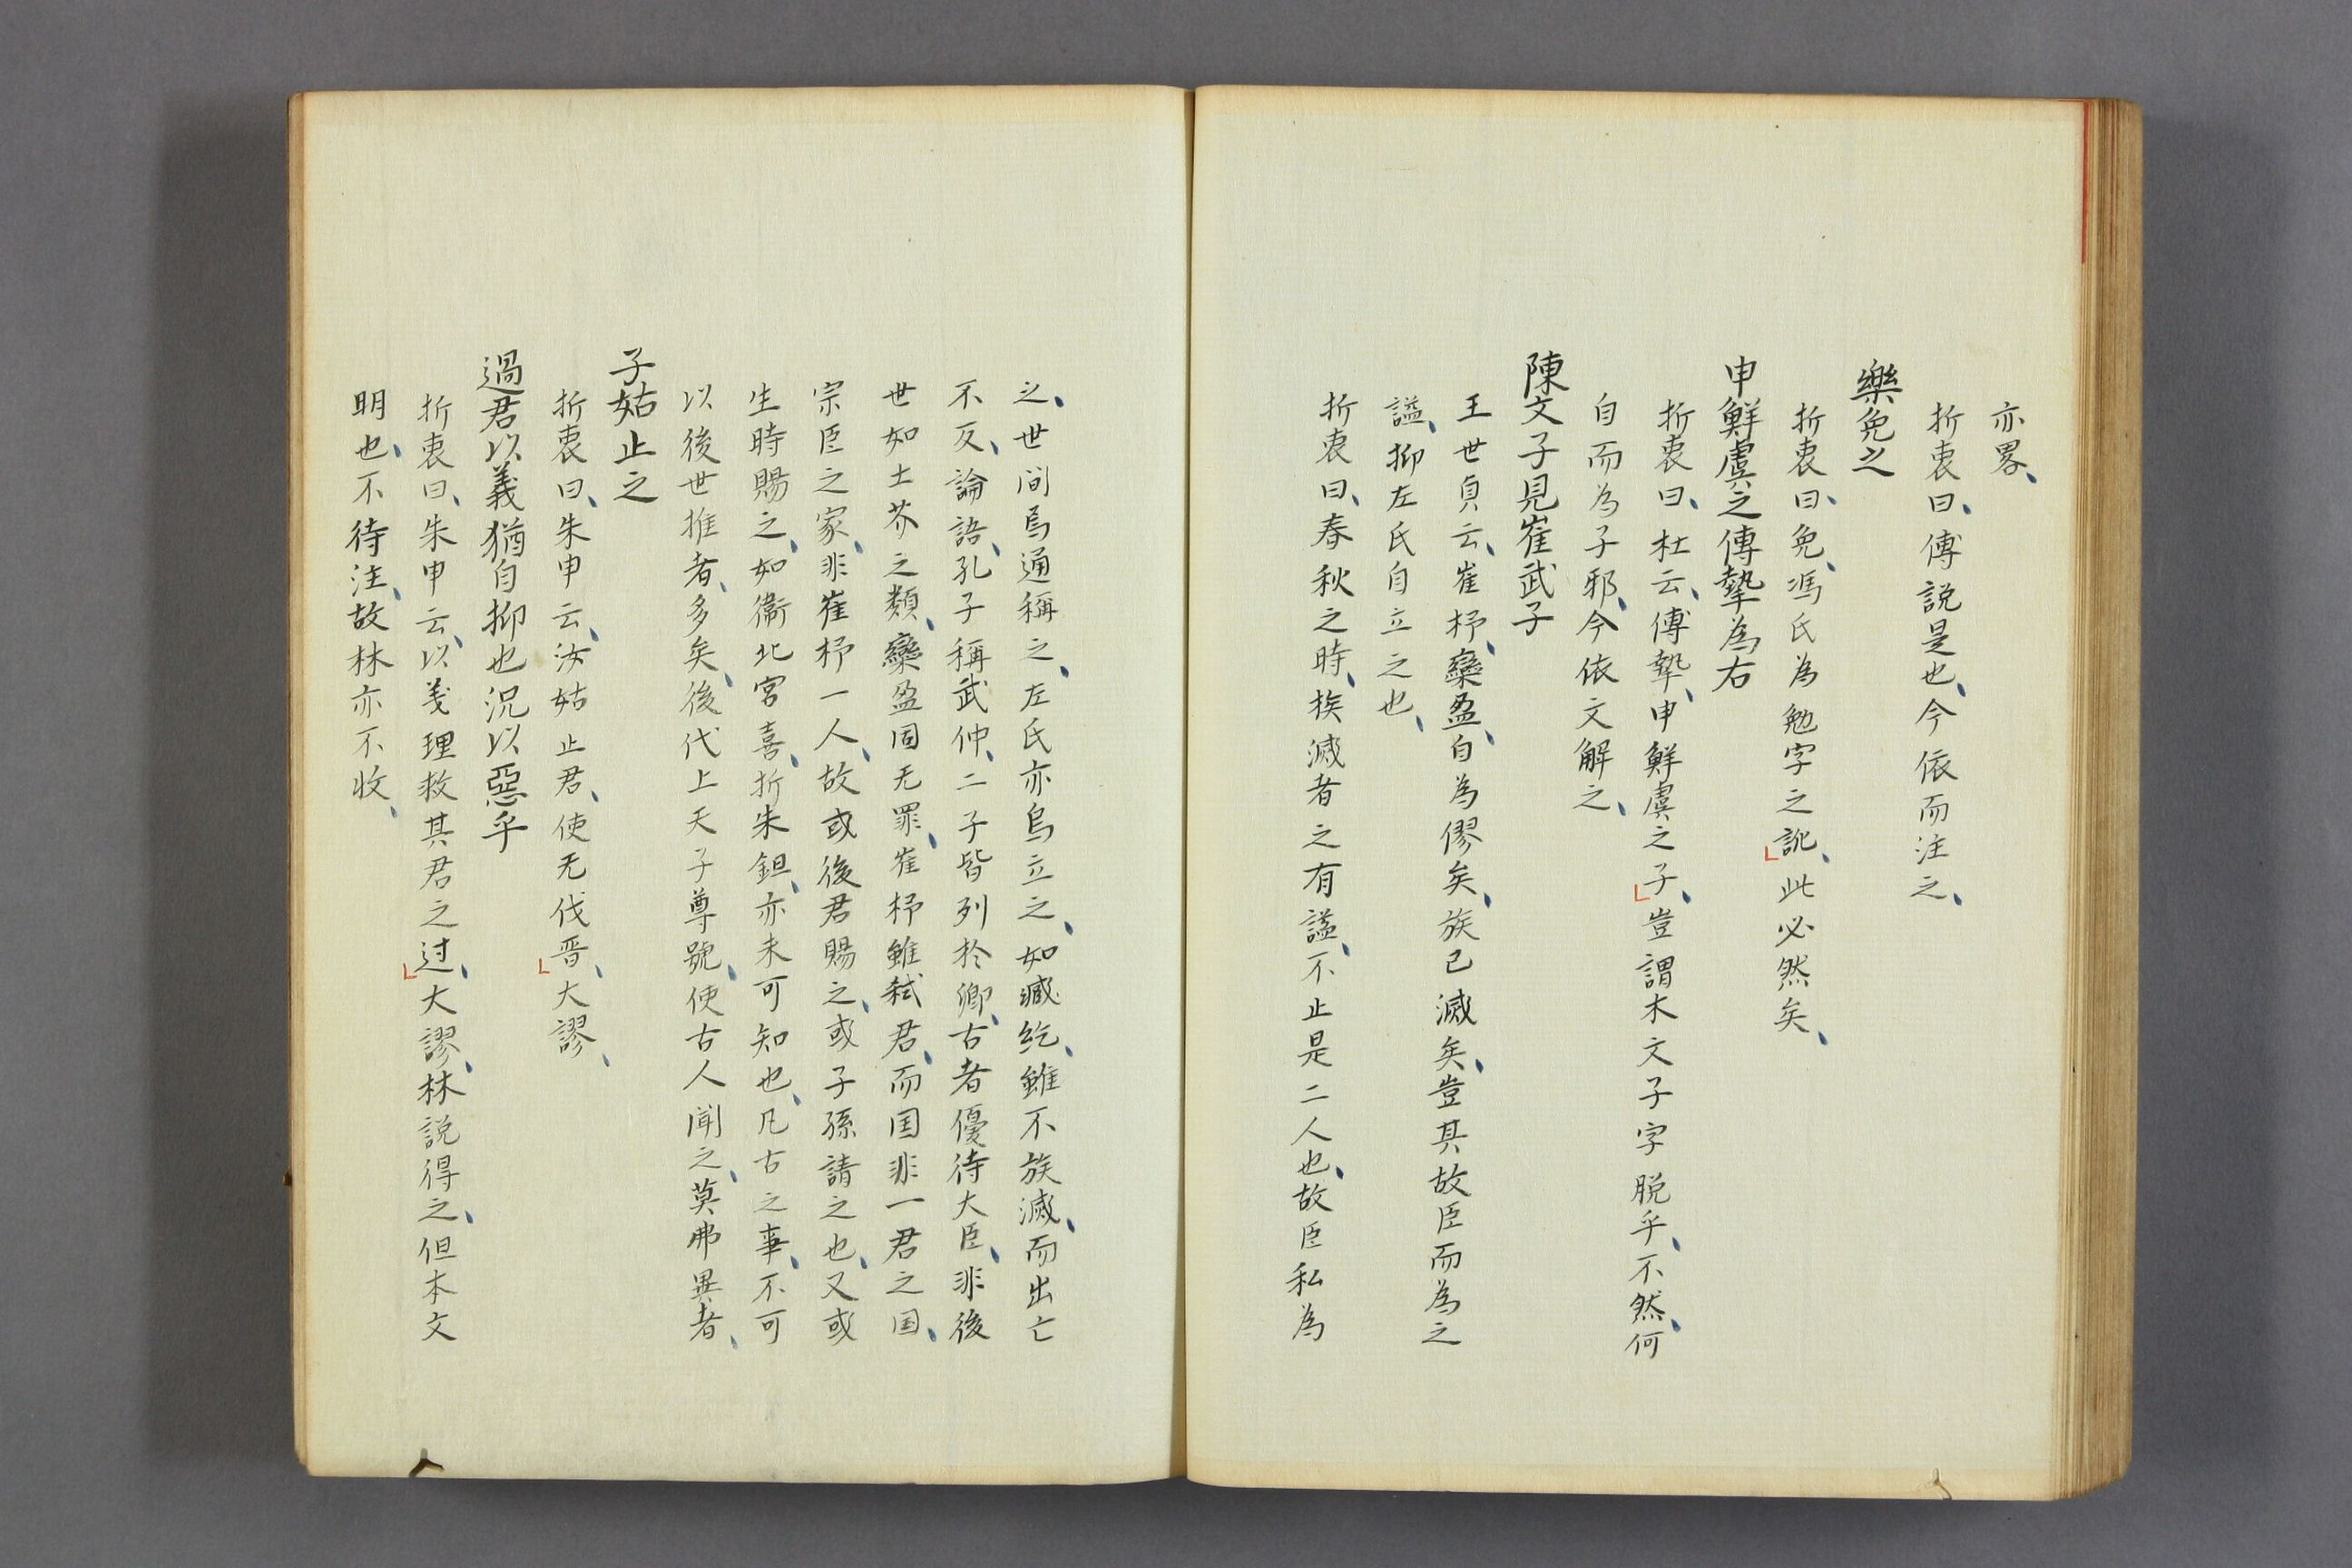 亦畧、
折衷曰、傅説是也、今依而注之、
樂免之
折衷曰、免、馮氏為勉字之訛、此必然矣、
申鮮虞之傅摯為右
折衷曰、杜云、傅摯、申鮮虞之子、豈謂木文子字脱乎、不然、何
自而為子邪、今依文解之、
陳文子見崔武子
王世貞云、崔杼、欒盈、自為僇矣、族已滅矣、豈其故臣而為之
謚、抑左氏自立之也、
折衷曰、春秋之時、族滅者之有謚、不止是二人也、故臣私為
之、世间焉通稱之、左氏亦烏立之、如臧紇、雖不族滅、而出亡
不反、論語、孔子稱武仲、二子皆列於卿、古者優待大臣、非後
世如土芥之類、欒盈固无罪、崔杼雖弑君、而国非一君之国、
宗臣之家、非崔杼一人、故或後君賜之、或子孫請之也、又或
生時賜之、如衞北宮喜、折朱鉏、亦未可知也、凡古之事、不可
以後世推者、多矣、後代上天子尊號、使古人聞之、莫弗異者、
子姑止之
折衷曰、朱申云、汝姑止君、使无伐晋、大謬、
過君以義猶自抑也況以惡乎
折衷曰、朱申云、以义理救其君之过、大謬、林説得之、但本文
明也、不待注、故林亦不收、